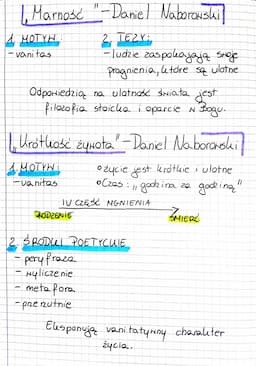 „Marność" - Daniel Naborowski
1. MOTYW: 2. TEZY:
- vanitas - ludzie zaspokajają swoje
pragnienia, które są ulotne
Odpowiedzią na ulotność świata jest
filozofia stoicka i oparcie w Bogu.
„Krótkość żywota" - Daniel Naborowski
1. MOTYW: • życie jest krótkie i ulotne
- vanitas • Czas: „godzina za godziną"
IV CZĘŚĆ MGNIENIA
RODZENIE ŚMIERĆ
2. ŚRODKI POETYCKIE
- peryfraza
- wyliczenie
- metafora
- przerzutnie
Eksponują vanitatywny charakter
życia.